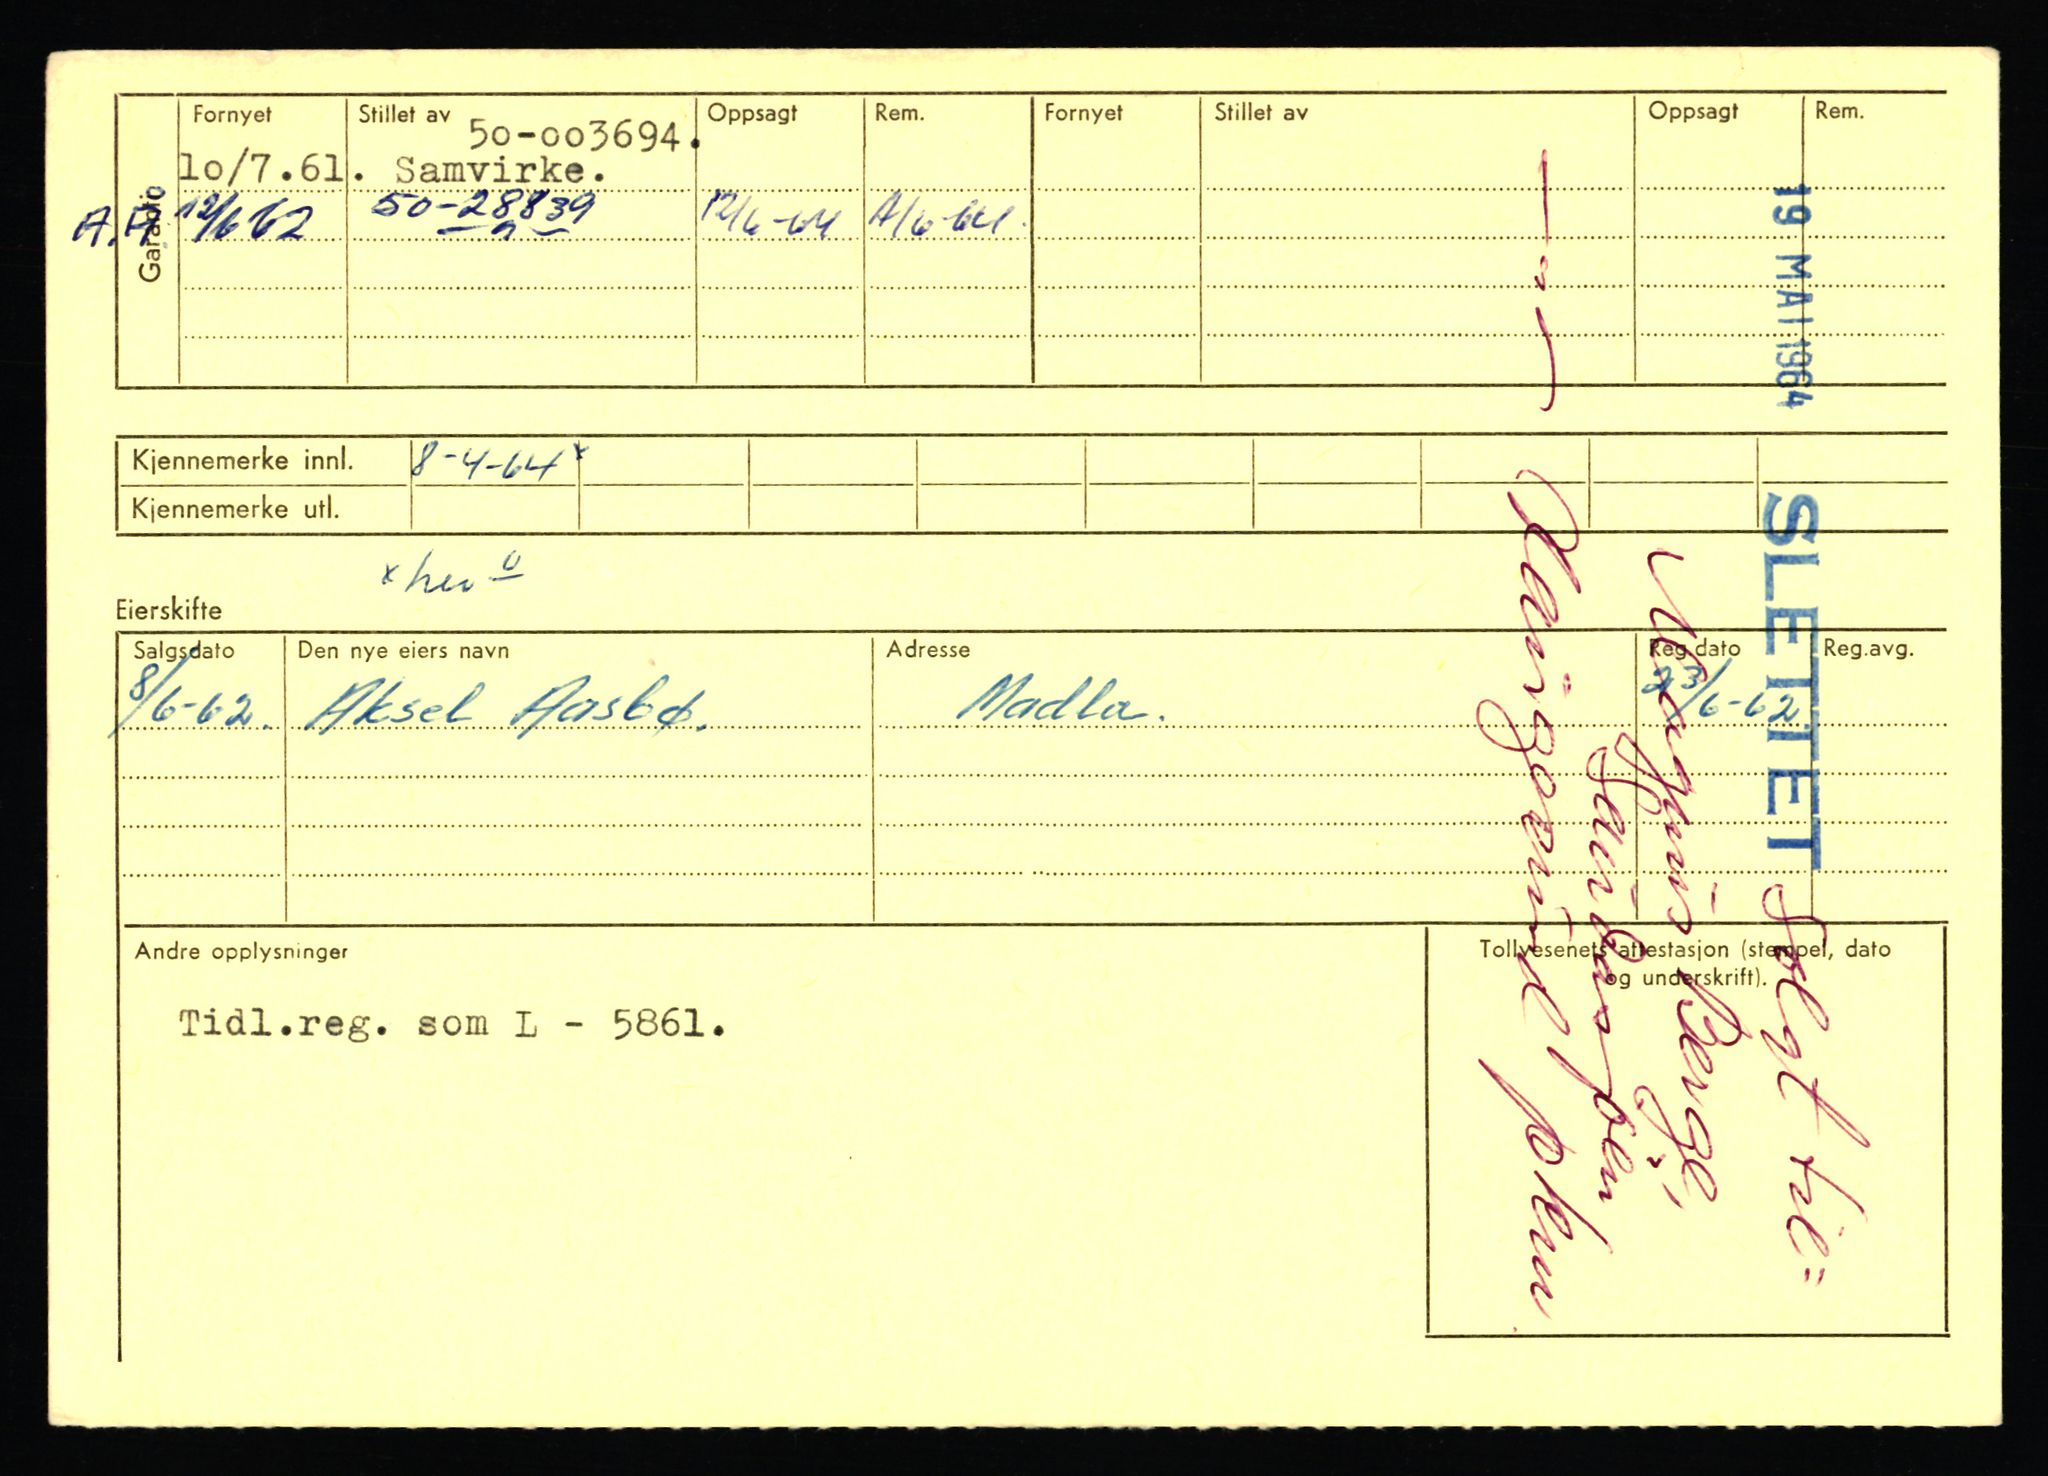 Garantio
Fornyet Stillet av Oppsagt Rem. Fornyet Stillet av Oppsagt Rem.
50-003694.
10/7.61. Samvirke.
A.A. 12/6 62 50-28839 12/6-64 A/6-64.
Kjennemerke innl. 8-4-64 x
Kjennemerke utl.
Eierskifte
Salgsdato Den nye eiers navn Adresse Reg.dato Reg.avg.
8/6-62. Aksel Aasbø. Madla. 23/6-62.
Andre opplysninger
Tidl.reg. som L - 5861.
Tollvesenets attestasjon (stempel, dato
og underskrift).
19 MAI 1964
SLETTET Solgt til:
Magnus Berge,